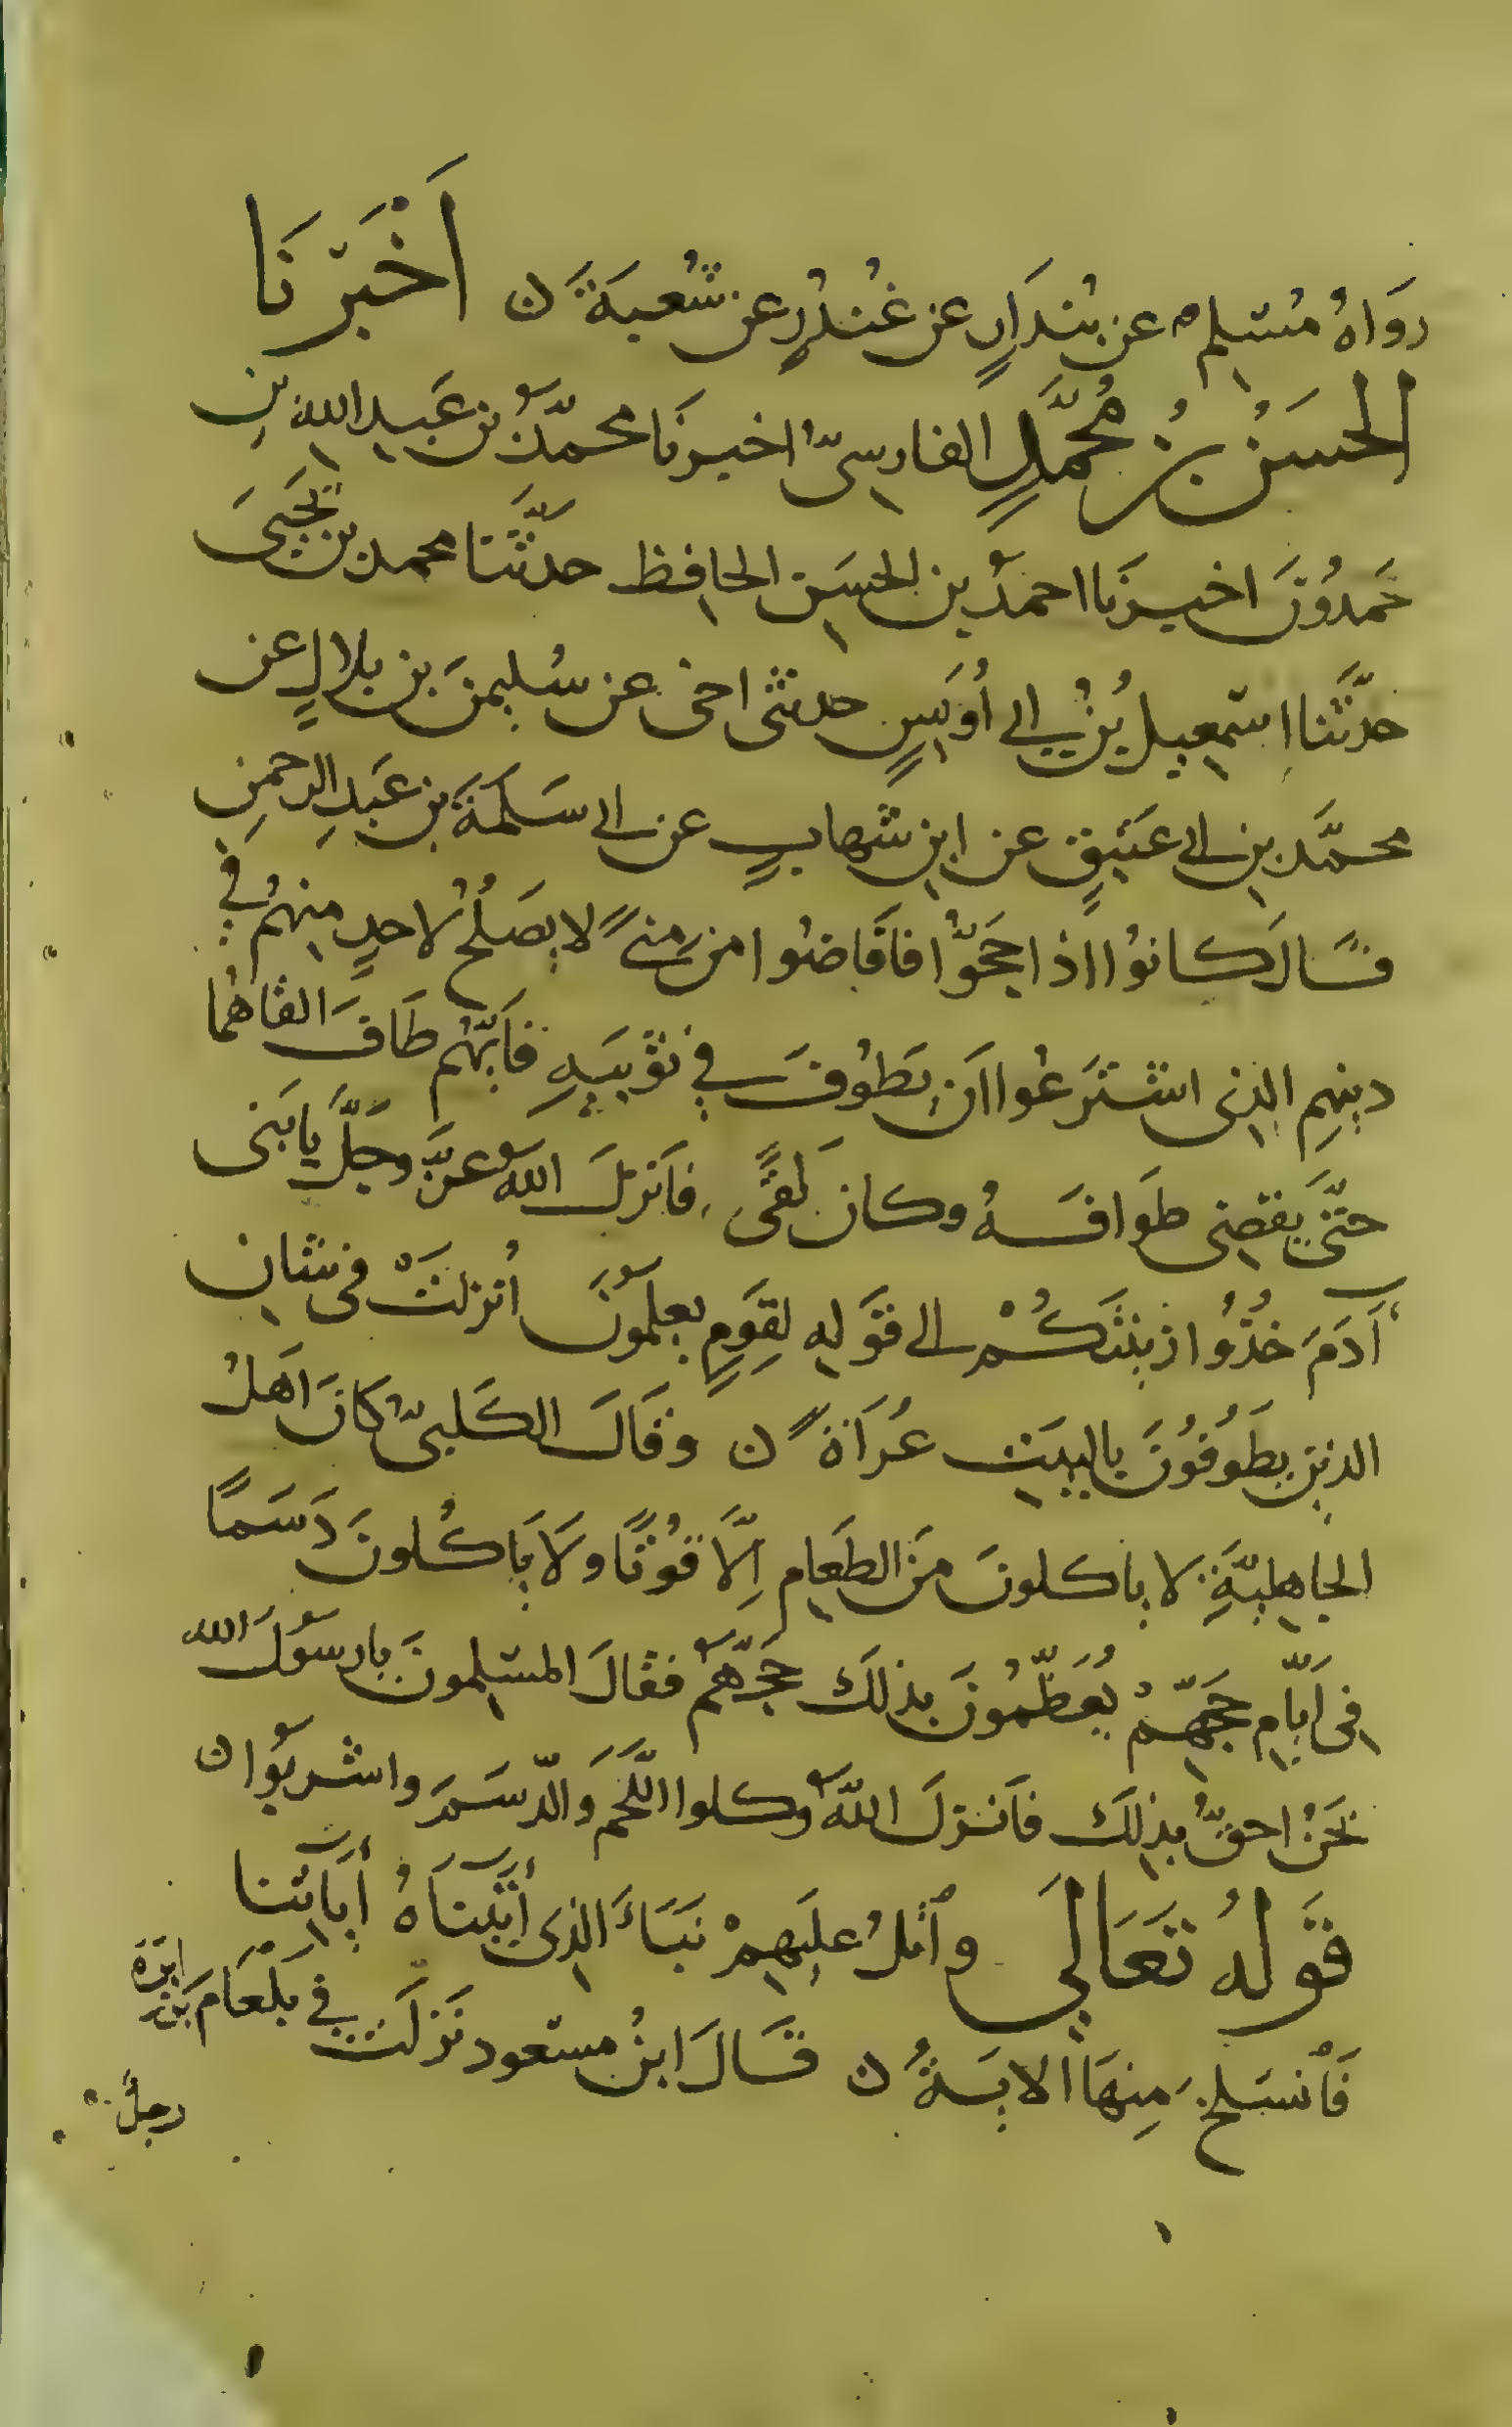 رَوَاهُ مُسْلِم عن بُندَارٍ عن غُندُرٍ عن شُعبَةَ ن أَخْبَرَنَا
الحسَنُ بنُ مُحمَّدٍ الفارسِىُّ اخبرنَا محمّدُ بن عَبدِ اللهِ بنِ
حَمدُونَ اخبرنَا احمدُ بن الحسَنِ الحافِظ حدَّثَنا محمد بن يَحْيَى
حَدَّثَنا اِسْمعِيل بنُ ابى أُوَيسٍ حدثنى اخى عن سُليمنَ بنِ بلالٍ عن
محمَّد بنِ ابى عَتيقٍ عن ابنِ شهابٍ عن ابى سَلَمَةَ بن عَبدِ الرحمنِ
قَالَ كانوُا اذا حَجّوُا فافَاضُوا من مِنىً لا يصَلُحُ لاحدٍ مِنهُم في
دينِهِم الذِى اشترَعُوا اَن يَطُوفَ في ثَوبَيهِ فَاَيّهُم طَافَ القَاهُمَا
حتّى يَقضِى طَوَافَهُ وكان لَقىً فَاَنزلَ اللهُ عزَّ وجلَّ يا بَنى
آدَمَ خُذُوا زِينَتَكُمْ الى قَولِهِ لِقَومٍ يعلمُونَ أُنزلَتْ في شانِ
الذينَ يطَوُفُونَ بالبَيتِ عُرَاةً ن وقَالَ الكَلبىُّ كانَ اَهلُ
الجاهِليَّةِ لا ياكلونَ مِنَ الطعَامِ اِلَّا قُوتًا ولَا يَاكُلونَ دَسَمًا
فِى اَيَّامِ حَجِّهِمْ يُعَظِّمُونَ بذلكَ حَجَّهُم فقالَ المسْلِمونَ يا رسُولَ الله
نَحنُ احقُّ بِذلِكَ فاَنزلَ اللهُ وكلوا اللَّحَم وَالدَّسَمَ واشربُوا ن
قَولُهُ تَعَالَى وَٱتلُ علَيهِمْ نَبَاَ الذِى آتَيْنَاهُ آيَاتِنا
فَٱنسَلخَ مِنهَا الايَةُ ن قَالَ ابنُ مسْعود نَزَلَت في بَلعَامَ بن ابرَه
رجلٌ